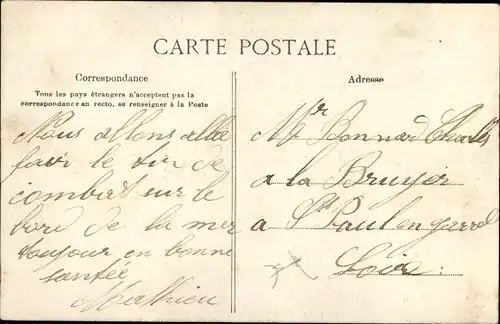 CARTE POSTALE
Correspondance
Tous les pays étrangers n'acceptent pas la
correspondance au recto, se renseigner à la Poste
Nous allons allée
fair le tir de
combat sur le
bord de la mer
toujour en bonne
santée
Mathieu
Adresse
Mr Bonnard Charles
a la Bruyer
a St Paul en
Loire